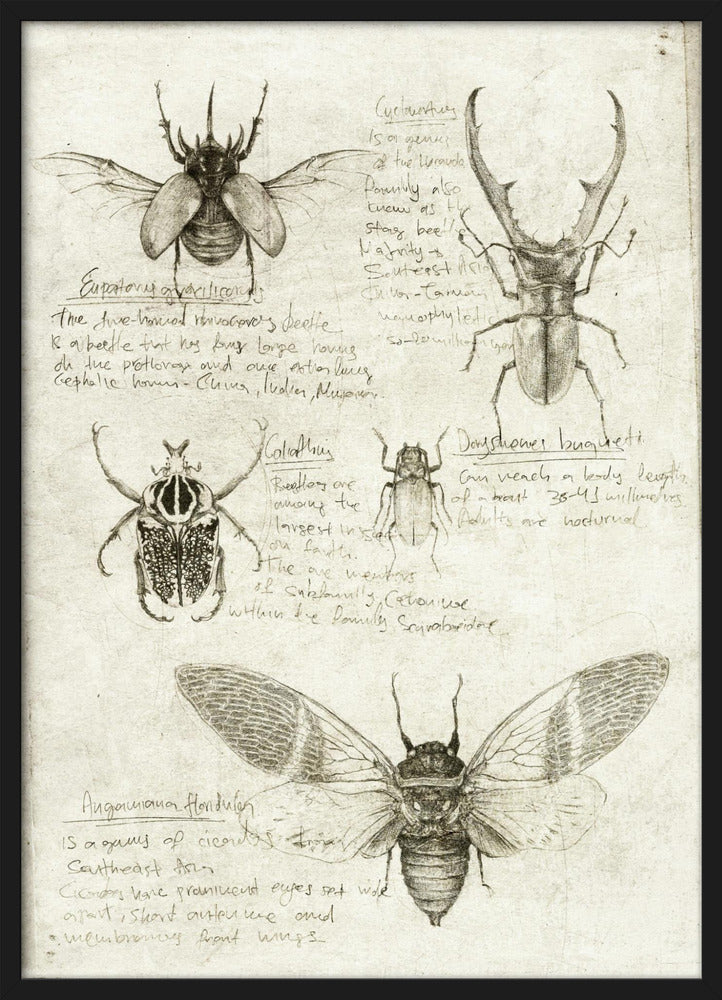 Cyclommatus
Is a genus
of the Lucanidae
family also
known as the
stag beetle
Majority -
Southeast Asia
Eupatorus gracilicornis
The five-horned rhinoceros beetle
Is a beetle that has four large horns
on the prothorax and one
cephalic horn - China, India, Myanmar.
Goliathus
Beetles are
among the
largest insects
on Earth.
The are members
of subfamily Cetoniinae
within the family Scarabaeidae
Dorysthenes buqueti.
Can reach a body length
of about 38-41 millimetres
Adults are nocturnal
Angamiana floridula
Is a genus of cicadas from
Southeast Asia
Cicadas have prominent eyes set wide
apart, short antennae and
membranous front wings